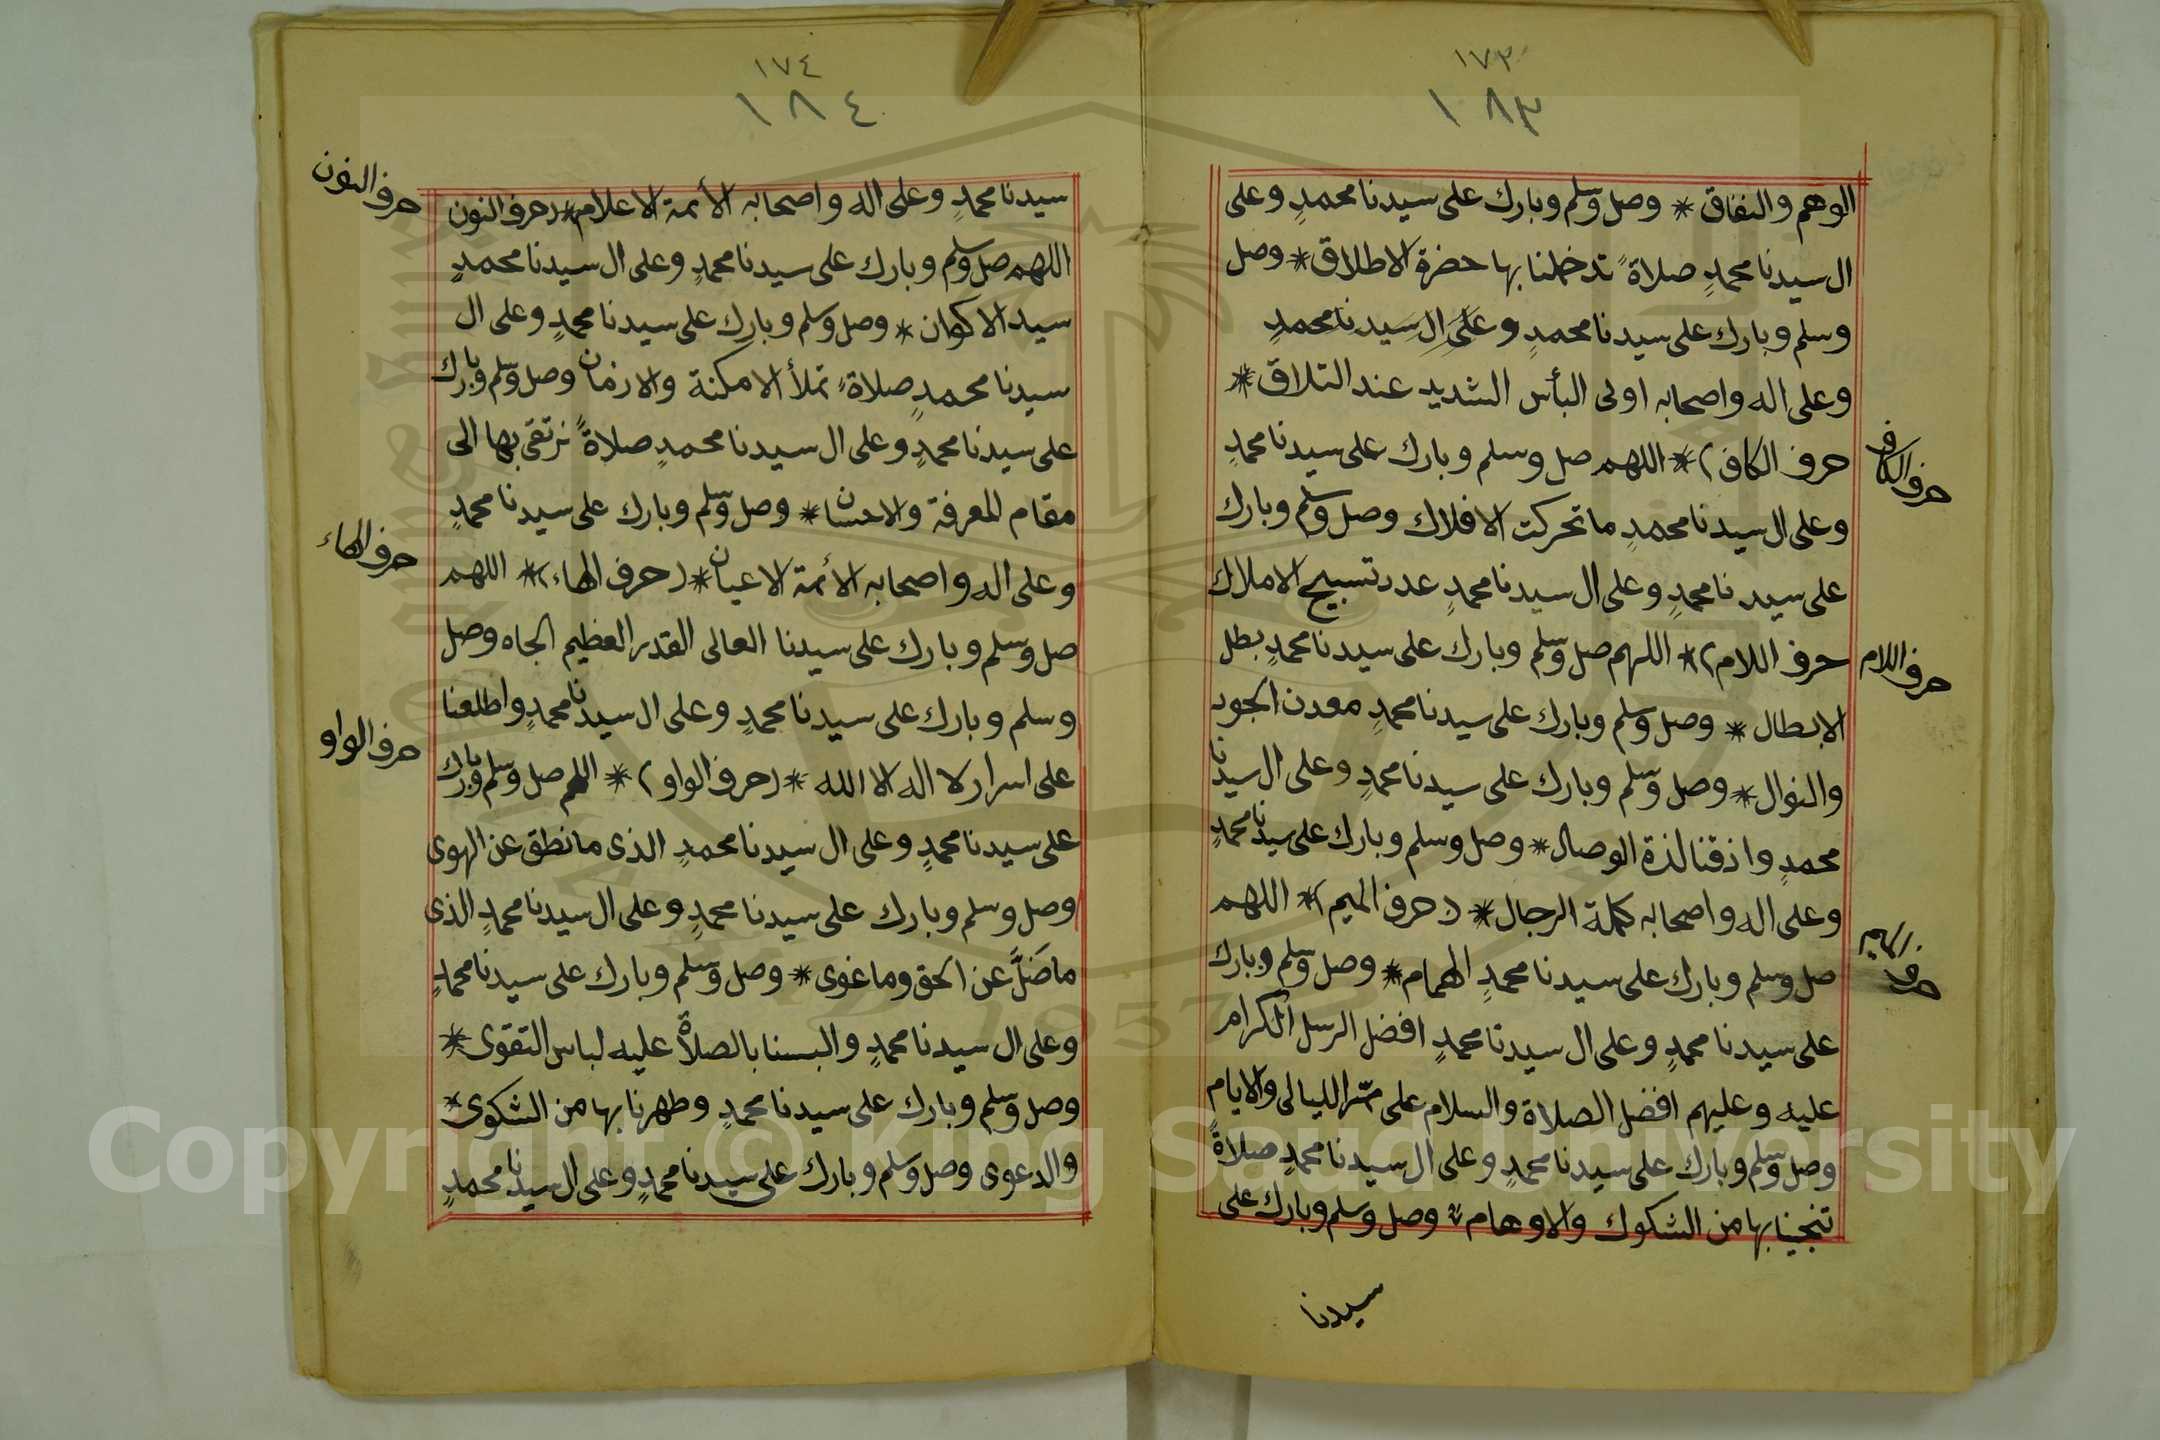 ١٧٣
١٨٣
الوهم والنفاق * وصل وسلم وبارك على سيدنا محمدٍ وعلى
ال سيدنا محمدٍ صلاةً تدخلنا بها حضرة الاطلاق * وصل
وسلم وبارك على سيدنا محمدٍ وعَلَى الِ سَيدنا محمدٍ
وعلى اله واصحابه اولى البأس الشديد عند التلاق *
حرف الكاف) * اللهم صل وسلم وبارك على سيدنا محمدٍ
وعلى ال سيدنا محمدٍ ما تحركت الافلاك وصل وسلم وبارك
على سيدنا محمدٍ وعلى ال سيدنا محمدٍ عدد تسبيح الاملاك
حرف اللام) * اللهم صل وسلم وبارك على سيدنا محمدٍ بطل
الابطال * وصل وسلم وبارك على سيدنا محمدٍ معدن الجود
والنوال * وصل وسلم وبارك على سيدنا محمدٍ وعلى ال سيدنا
محمدٍ واذقنا لذة الوصال * وصل وسلم وبارك على سيدنا محمدٍ
وعلى اله واصحابه كملة الرجال * (حرف الميم) * اللهم
صل وسلم وبارك على سيدنا محمدٍ الهمام * وصل وسلم وبارك
على سيدنا محمدٍ وعلى ال سيدنا محمدٍ افضل الرسل الكرام
عليه وعليهم افضل الصلاة والسلام على ممر الليالى والايام
وصل وسلم وبارك على سيدنا محمدٍ وعلى ال سيدنا محمدٍ صلاةً
تنجينا بها من الشكوك والاوهام * وصل وسلم وبارك على
سيدنا
حرف الكاف
حرف اللام
حرف الميم
١٧٤
١٨٤
سيدنا محمدٍ وعلى اله واصحابه الأئمة الاعلام * (حرف النون
اللهم صل وسلم وبارك على سيدنا محمدٍ وعلى ال سيدنا محمدٍ
سيد الاكوان * وصل وسلم وبارك على سيدنا محمدٍ وعلى ال
سيدنا محمدٍ صلاةً تملأ الامكنة والازمان وصل وسلم وبارك
على سيدنا محمدٍ وعلى ال سيدنا محمدٍ صلاةً نرتقى بها الى
مقام المعرفة والاحسان * وصل وسلم وبارك على سيدنا محمدٍ
وعلى اله واصحابه الأئمة الاعيان * (حرف الهاء) * اللهم
صل وسلم وبارك على سيدنا العالى القدر العظيم الجاه وصل
وسلم وبارك على سيدنا محمدٍ وعلى ال سيدنا محمدٍ واطلعنا
على اسرار لا اله الا الله * (حرف الواو) * اللهم صل وسلم وبارك
على سيدنا محمدٍ وعلى ال سيدنا محمدٍ الذى ما نطق عن الهوى
وصل وسلم وبارك على سيدنا محمدٍ وعلى ال سيدنا محمدٍ الذى
ما ضَلَّ عن الحق وما غوى * وصل وسلم وبارك على سيدنا محمدٍ
وعلى ال سيدنا محمدٍ والبسنا بالصلاة عليه لباس التقوى *
وصل وسلم وبارك على سيدنا محمدٍ وطهرنا بها من الشكوى *
والدعوى وصل وسلم وبارك على سيدنا محمدٍ وعلى ال سيدنا محمدٍ
حرف النون
حرف الهاء
حرف الواو
Copyright © King Saud University
1957